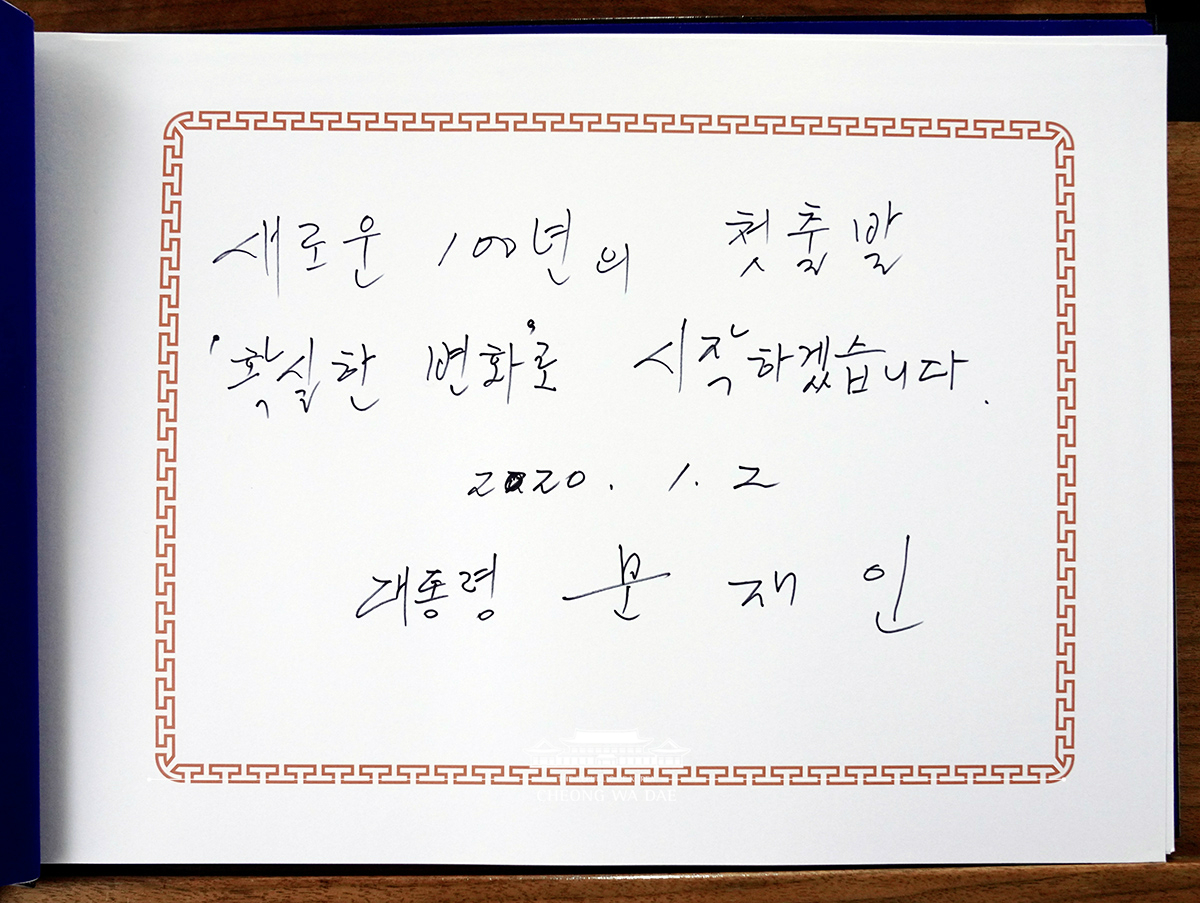 새로운 100년의 첫출발
'확실한 변화'로 시작하겠습니다.
2020. 1. 2
대통령 문 재 인
CHEONG WA DAE